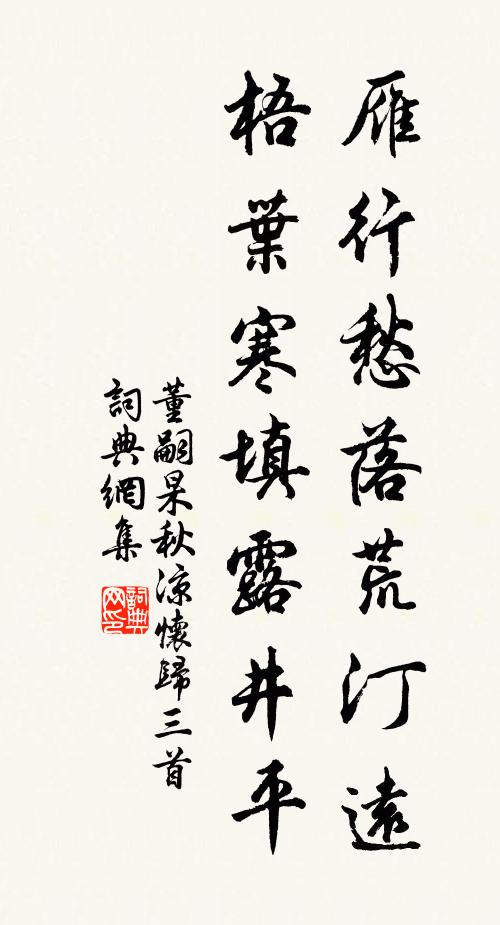 雁行愁落荒汀遠
梧葉寒填露井平
董嗣杲秋涼懷歸三首
詞典網集
詞典网印